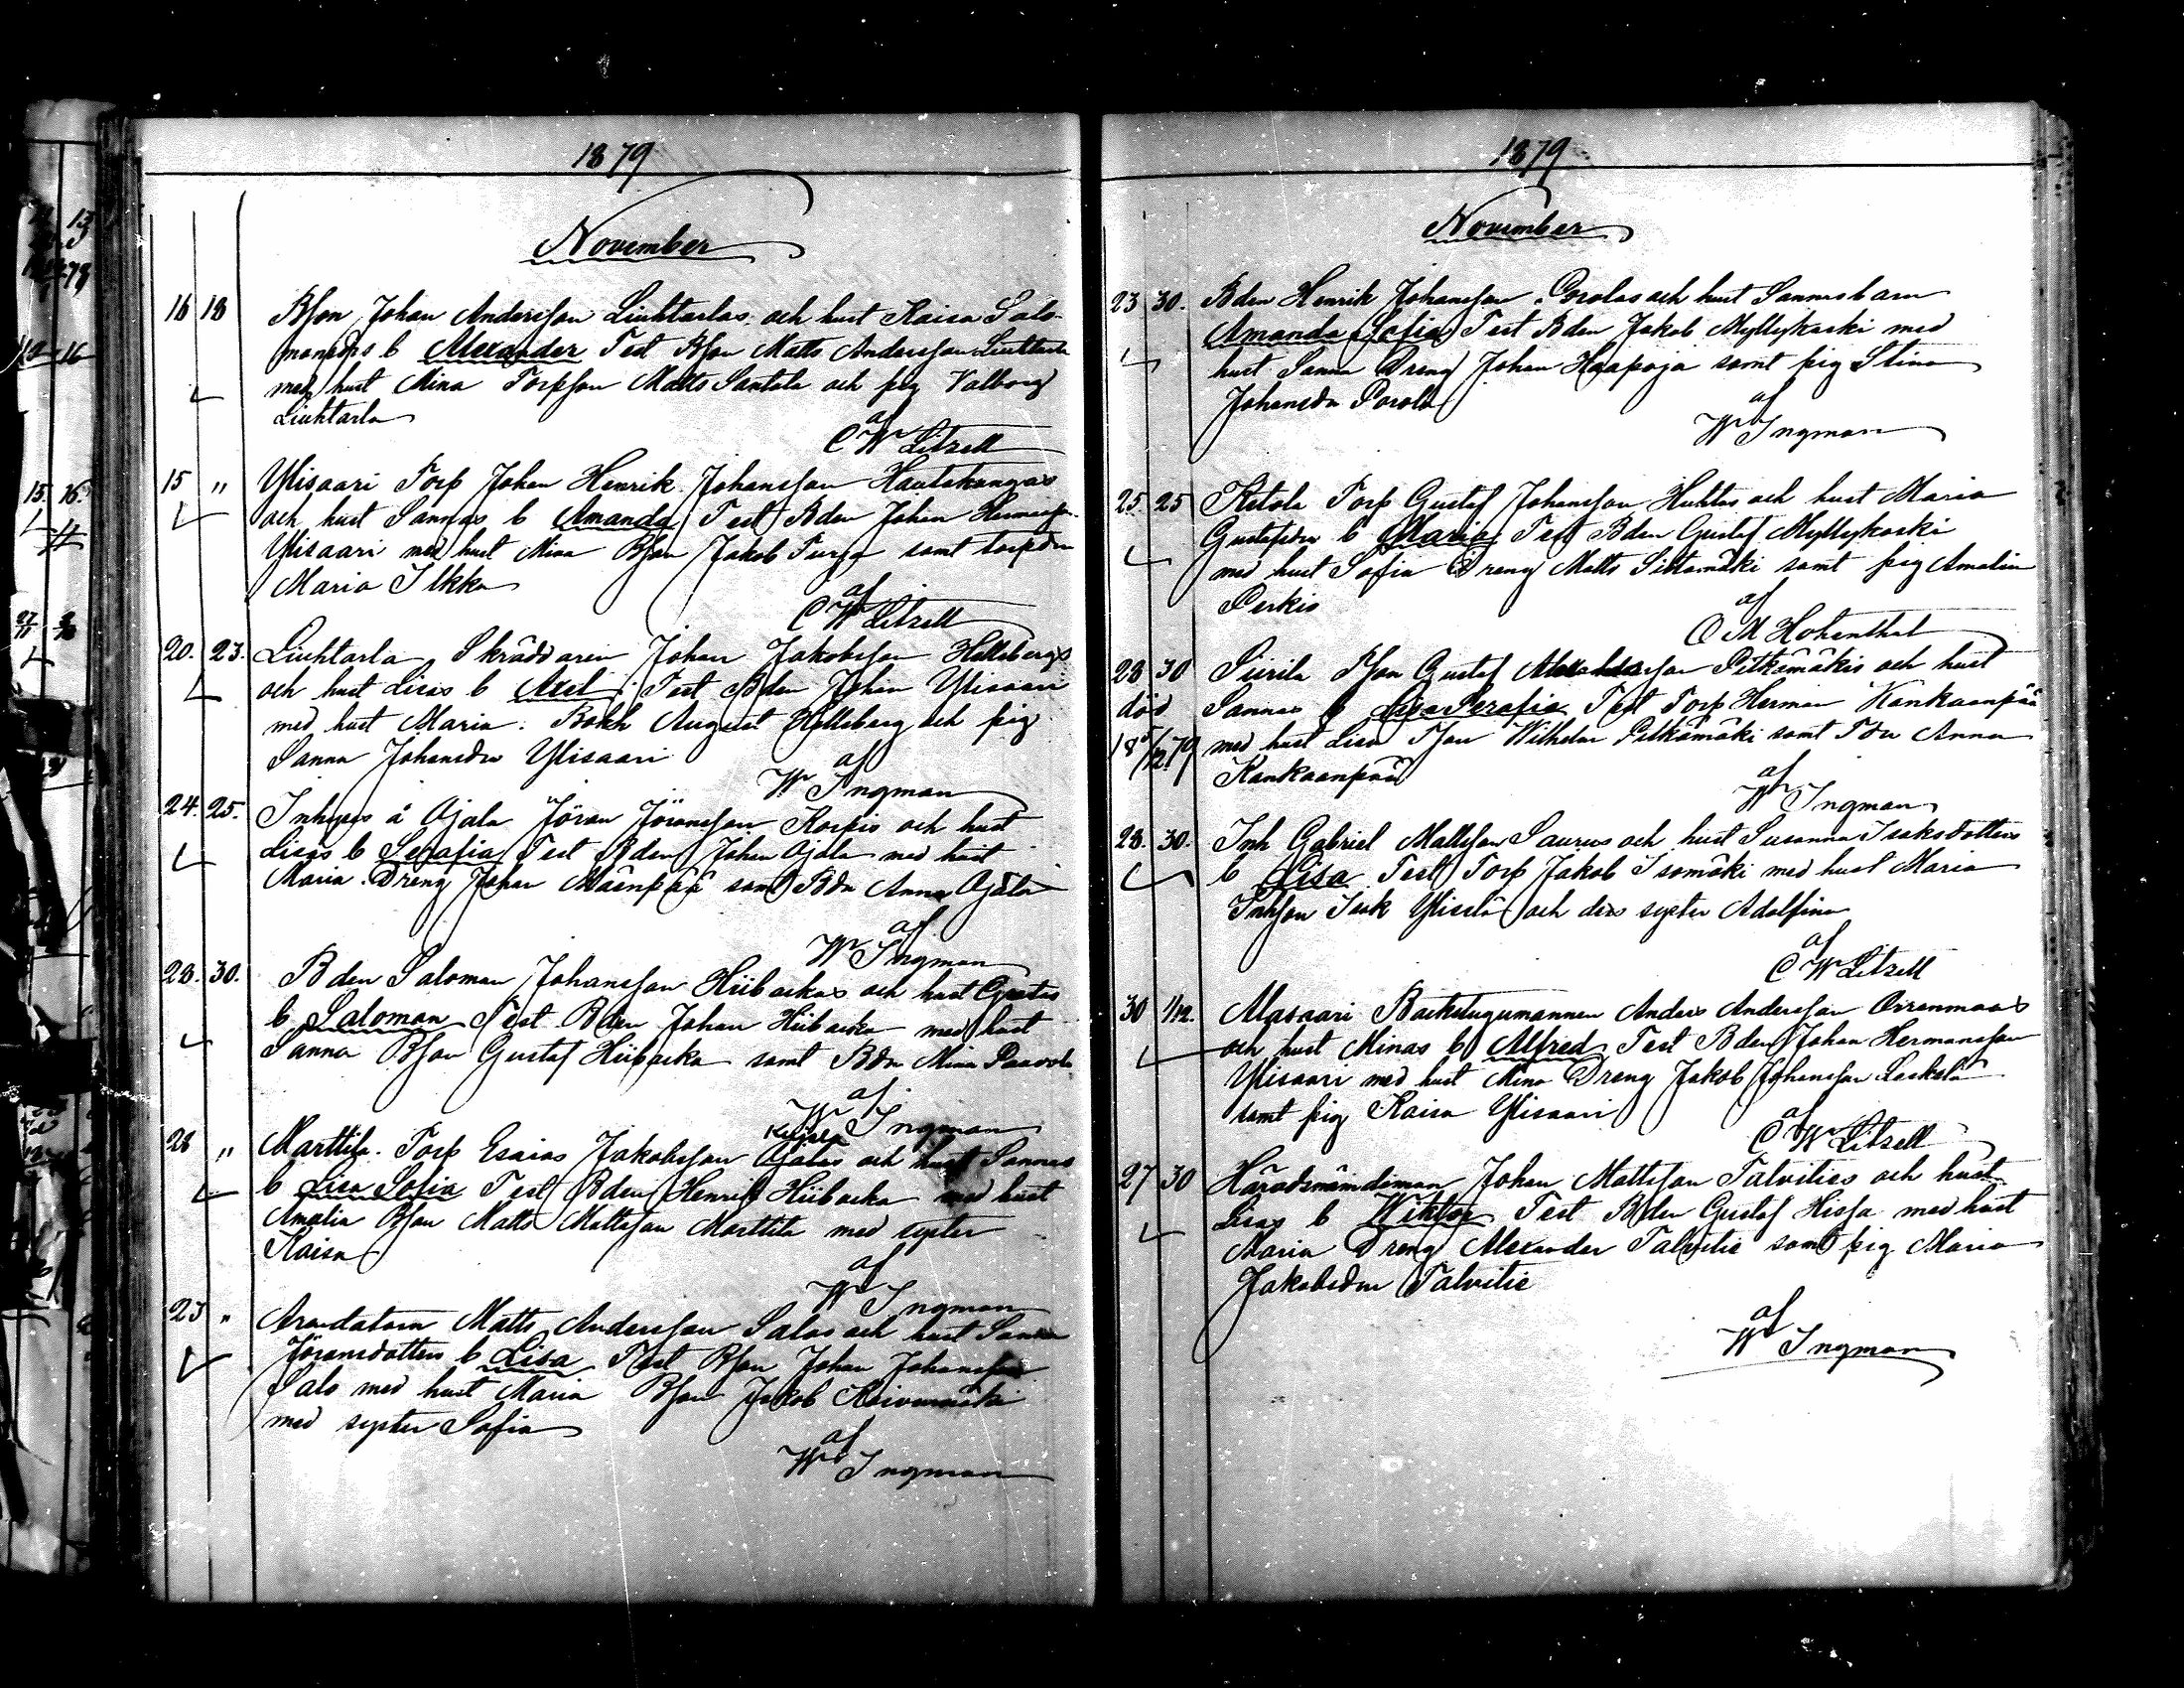 1879
November
16 18 Bson Johan Andersson Liuhtarlas och hust Kaisa Salo-
monsdrs b Alexander Test Bson Matts Andersson Liuhtarla
med hust Mina Torpson Matts Santala och pig Valborg
Liuhtarla
af
C W Litzell
15 " Ylisaari Torp Johan Henrik Johansson Hautakangas
och hust Sannas b Amanda Test Bden Johan Hermansson
Ylisaari med hust Mina Bson Jakob Turja samt torpdr
Maria Ilkka
af
C W Litzell
20. 23. Liuhtarla Skräddaren Johan Jakobsson Hellsbergs
och hust Lisas b Axel Test Bden Johan Ylisaari
med hust Maria. Bokh August Hellsberg och pig
Sanna Johansdr Ylisaari
af
W Ingman
24. 25. Inhyses å Ajala Jöran Jöransson Korpis och hust
Lisas b Serafia Test Bden Johan Ajala med hust
Maria. Dreng Johan Mäenpää samt Bdr Anna Ajala
af
W Ingman
28. 30. Bden Saloman Johansson Hiibackas och hust Gretas
b Saloman Test Bden Johan Hiibacka med hust
Sanna Bson Gustaf Hiibacka samt Bdr Mina Paavola
af
W Ingman
28 " Marttila. Torp Esaias Jakobsson Ajalas och hust Sannas
b Lisa Sofia Test Bden Henrik Hiibacka med hust
Amalia Bson Matts Mattsson Marttila med syster
Kaisa
af
W Ingman
23 " Arendatorn Matts Andersson Salos och hust Sanna
Jöransdotters b Lisa Test Bson Johan Johansson
Salo med hust Maria Bson Jakob Koivumäki
med syster Sofia
af
W Ingman
1879
November
23 30. Bden Henrik Johansson Porolas och hust Sannas barn
Amanda Sofia Test Bden Jakob Myllykoski med
hust Sanna Dreng Johan Haapoja samt pig Stina
Johansdr Porola
af
W Ingman
25. 25 Ketola Torp Gustaf Johansson Huhtas och hust Maria
Gustafsdr b Maria Test Bden Gustaf Myllykoski
med hust Sofia Dreng Matts Siltamäki samt pig Amalia
Perkiö
af
O M Hohenthal
28 30 Siirila Bson Gustaf Alexandersson Pitkämäkis och hust
död Sannas b Lisa Serafia Test Torp Herman Kankaanpää
18 5/12 79 med hust Lisa Bson Wilhelm Pitkämäki samt Tdr Anna
Kankaanpää
af
W Ingman
28. 30. Inh Gabriel Mattsson Saurus och hust Susanna Isaksdotters
b Lisa Test Torp Jakob Isomäki med hust Maria
Inhson Isak Yliselä och dess syster Adolfina
af
C W Litzell
30 1/12. Alasaari Backstugumannen Anders Andersson Orrenmaas
och hust Minas b Alfred Test Bden Johan Hermansson
Ylisaari med hust Mina Dreng Jakob Johansson Laskala
samt pig Kaisa Ylisaari
af
C W Litzell
27 30 Häradsnämdeman Johan Mattsson Talvities och hust
Lisas b Wiktor Test Bden Gustaf Hissa med hust
Maria Dreng Alexander Talvitie samt pig Maria
Jakobsdr Talvitie
af
W Ingman